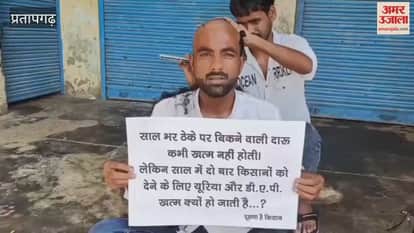 प्रतापगढ़
अमर उजाला
amarujala.com
OCEAN
BROOKLYN
साल भर ठेके पर बिकने वाली दारू
कभी खत्म नहीं होती।
लेकिन साल में दो बार किसानों को
देने के लिए यूरिया और डी.ए.पी.
खत्म क्यों हो जाती है...?
पूछता है किसान